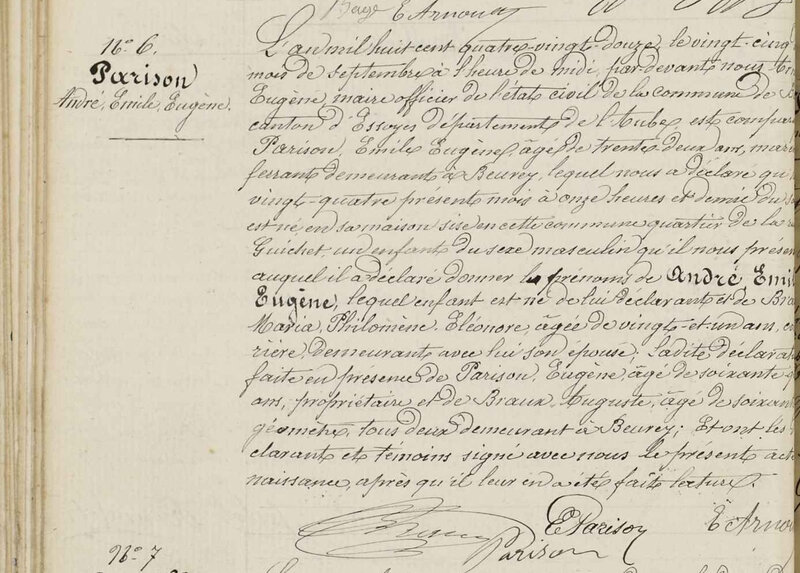 E Arnoux
No 6.
Parison
André, Emile, Eugène.
L'an mil huit cent quatre-vingt-douze, le vingt-cinq
mois de septembre à l'heure de midi, par-devant nous
Eugène, maire officier de l'état civil de la commune de B
canton d'Essoyes département de l'Aube, est compar
Parison, Emile Eugène, âgé de trente deux ans, maré
ferrant demeurant à Beurey, lequel nous a déclaré qu
vingt-quatre présent mois à onze heures et demie du s
est né en sa maison sise en cette commune quartier de la r
Guichet, un enfant du sexe masculin qu'il nous présen
auquel il a déclaré donner les prénoms de André, Emil
Eugène, lequel enfant est né de lui déclarant et de Brau
Maria, Philomène, Eléonore, âgée de vingt-et-un ans,
rière, demeurant avec lui son épouse; ladite déclarat
faite en présence de Parison, Eugène, âgé de soixante
ans, propriétaire et de Braux, Auguste, âgé de soixan
géomètre, tous deux demeurant à Beurey; Et ont les
clarant et témoins signé avec nous le présent acte
naissance, après qu'il leur en a été faite lecture.
E Parison
E Arnou
Parison
No 7